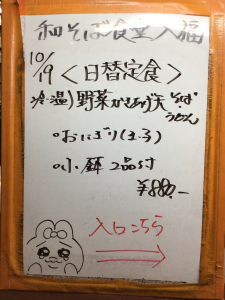 和そば食堂 入福
10/19 <日替定食>
冷・温) 野菜かきあげ天 そば
うどん
・おにぎり(1ケ)
・小鉢2品付
¥880.-
入口こちら